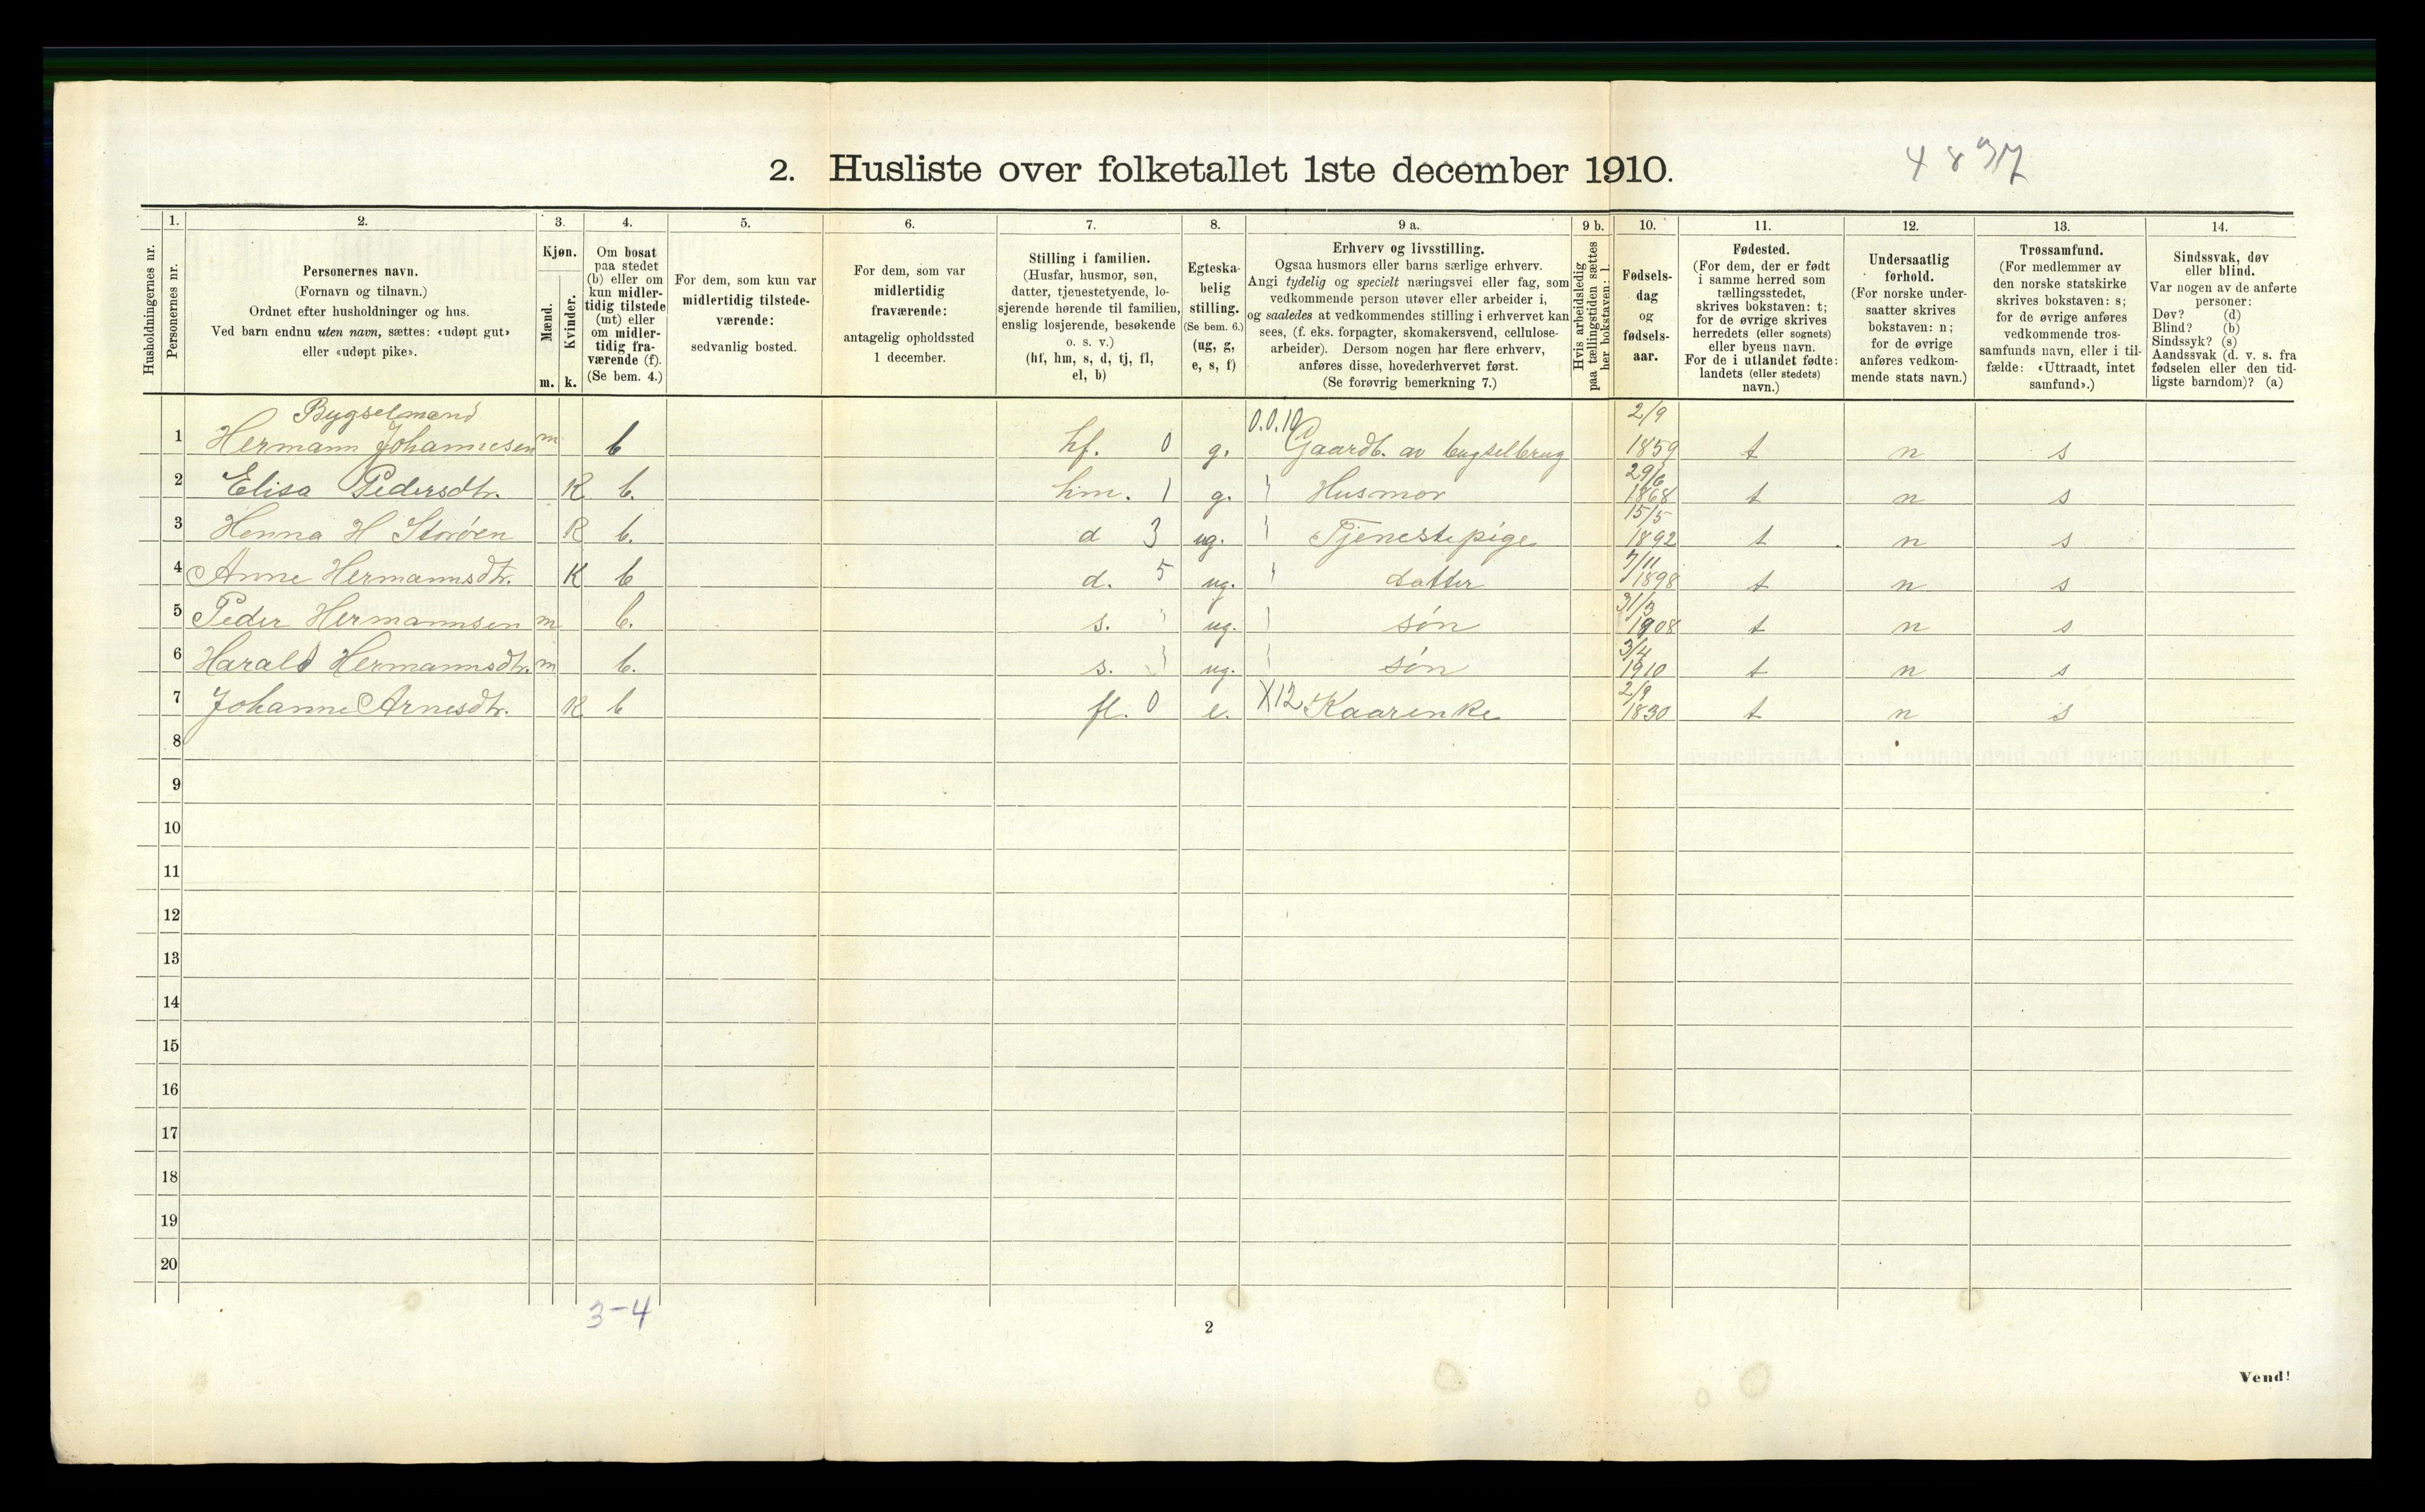 2. Husliste over folketallet 1ste december 1910.
Husholdningernes nr.
1.
Personernes nr.
2.
Personernes navn.
(Fornavn og tilnavn.)
Ordnet efter husholdninger og hus.
Ved barn endnu uten navn, sættes: «udøpt gut»
eller «udøpt pike».
3.
Kjøn.
Mænd.
Kvinder.
m. k.
4.
Om bosat
paa stedet
(b) eller om
kun midler-
tidig tilstede
(mt) eller
om midler-
tidig fra-
værende (f).
(Se bem. 4.)
5.
For dem, som kun var
midlertidig tilstede-
værende:
sedvanlig bosted.
6.
For dem, som var
midlertidig
fraværende:
antagelig opholdssted
1 december.
7.
Stilling i familien.
(Husfar, husmor, søn,
datter, tjenestetyende, lo-
sjerende hørende til familien,
enslig losjerende, besøkende
o. s. v.)
(hf, hm, s, d, tj, fl,
el, b)
8.
Egteska-
belig
stilling.
(Se bem. 6.)
(ug, g,
e, s, f)
9 a.
Erhverv og livsstilling.
Ogsaa husmors eller barns særlige erhverv.
Angi tydelig og specielt næringsvei eller fag, som
vedkommende person utøver eller arbeider i,
og saaledes at vedkommendes stilling i erhvervet kan
sees, (f. eks. forpagter, skomakersvend, cellulose-
arbeider). Dersom nogen har flere erhverv,
anføres disse, hovederhvervet først.
(Se forøvrig bemerkning 7.)
9 b.
Hvis arbeidsledig
paa tællingstiden sættes
her bokstaven: l.
10.
Fødsels-
dag
og
fødsels-
aar.
11.
Fødested.
(For dem, der er født
i samme herred som
tællingsstedet,
skrives bokstaven: t;
for de øvrige skrives
herredets (eller sognets)
eller byens navn.
For de i utlandet fødte:
landets (eller stedets)
navn.)
12.
Undersaatlig
forhold.
(For norske under-
saatter skrives
bokstaven: n;
for de øvrige
anføres vedkom-
mende stats navn.)
13.
Trossamfund.
(For medlemmer av
den norske statskirke
skrives bokstaven: s;
for de øvrige anføres
vedkommende tros-
samfunds navn, eller i til-
fælde: «Uttraadt, intet
samfund».)
14.
Sindssvak, døv
eller blind.
Var nogen av de anførte
personer:
Døv? (d)
Blind? (b)
Sindssyk? (s)
Aandssvak (d. v. s. fra
fødselen eller den tid-
ligste barndom)? (a)
Bygselmand 0.0.10 2/9
1 Hermann Johannesen m b hf. 0 g. Gaardb. av bugselbrug 1859 t n s
2 Elisa Pedersdtr. K b. hm. 1 g. Husmor 29/6 1868 t n s
3 Henna H Storöen K b. d 3 ug. Tjenestepige 15/5 1892 t n s
4 Anne Hermannsdtr. K b d. 5 ug. datter 7/11 1898 t n s
5 Peder Hermannsen m b. s. ug. søn 31/3 1908 t n s
6 Harald Hermannsdtr. m b. s. ug. søn 3/4 1910 t n s
7 Johanne Arnesdtr. K b fl. 0 e. X12 Kaarenke 2/9 1830 t n s
8
9
10
11
12
13
14
15
16
17
18
19
20
3-4
2
Vend!